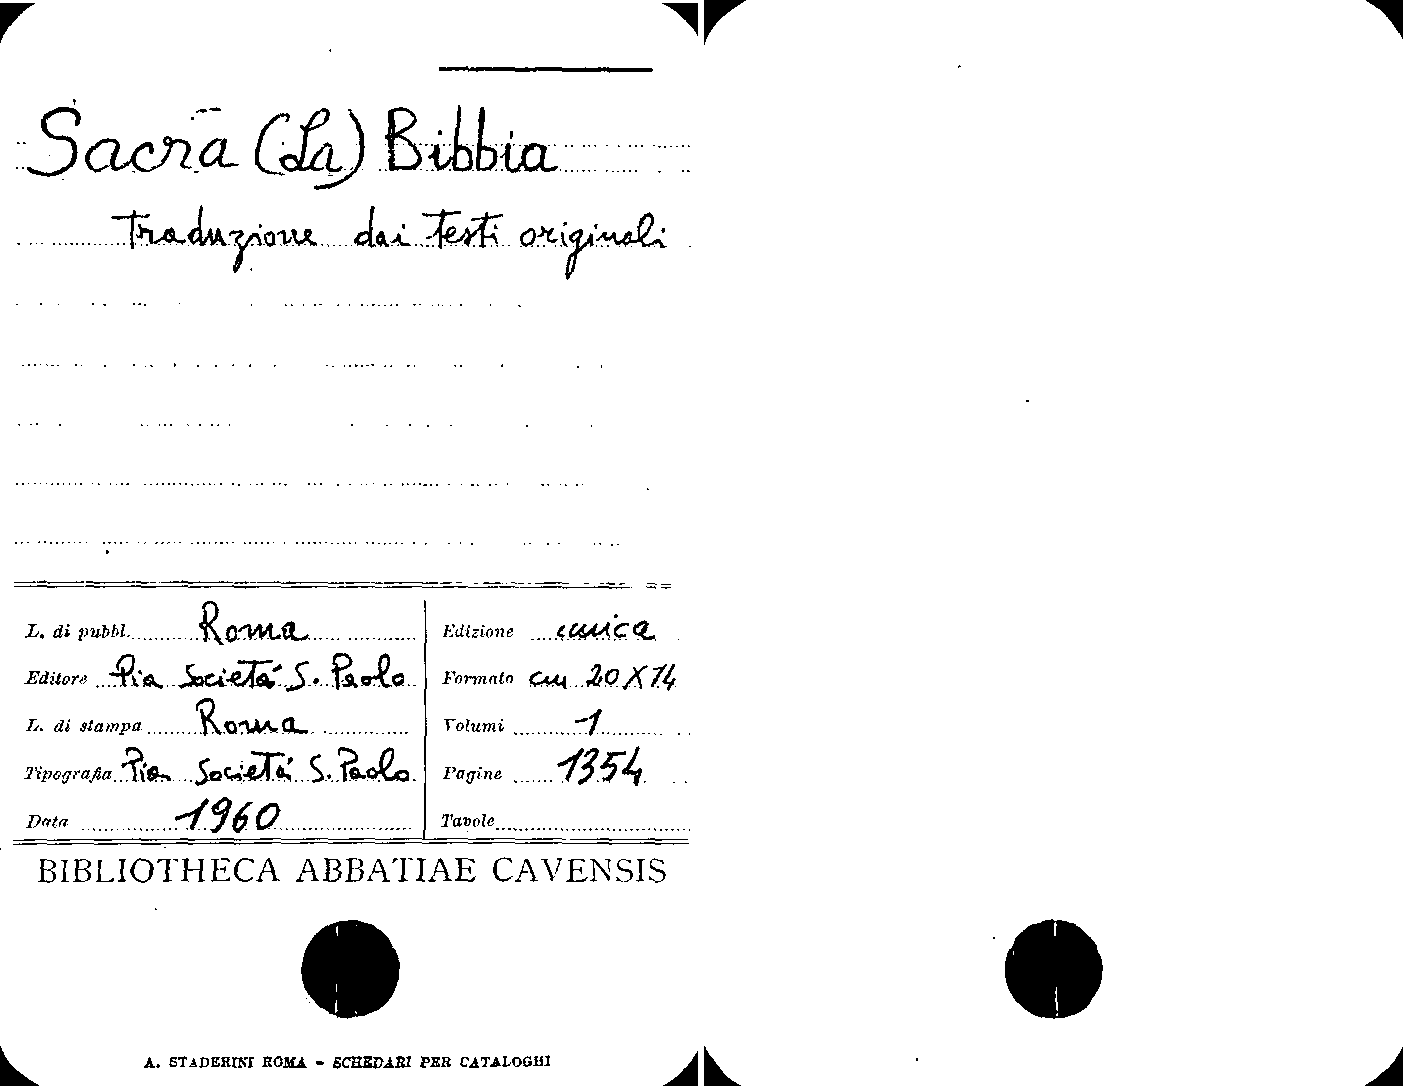 Sacra (La) Bibbia
Traduzione dai testi originali
L. di pubbl. Roma
Edizione unica
Editore Pia Società S. Paolo
Formato cm 20 X 14
L. di stampa Roma
Volumi 1
Tipografia Pia Società S. Paolo
Pagine 1354
Data 1960
Tavole
BIBLIOTHECA ABBATIAE CAVENSIS
A. STADERINI ROMA - SCHEDARI PER CATALOGHI